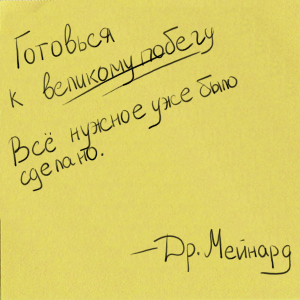 Готовься
к великому побегу
Всё нужное уже было
сделано.
—Др. Мейнард